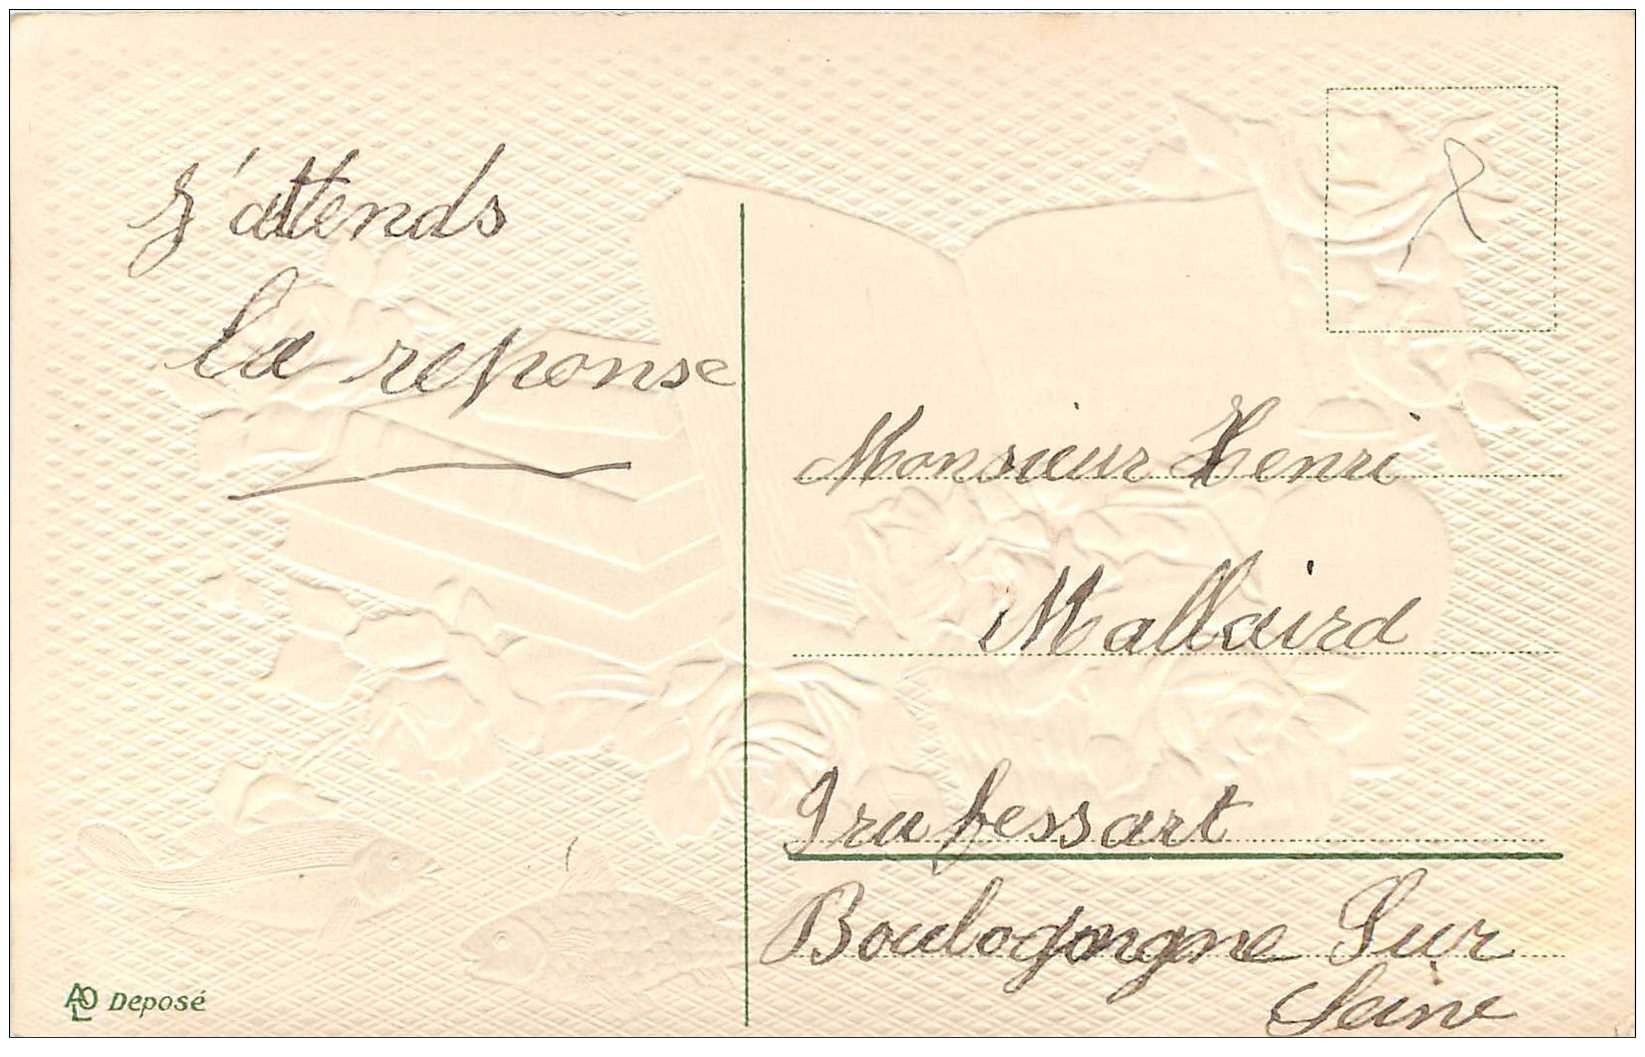 J'attends
la reponse
Monsieur Henri
Mallaird
Grufessart
Boulogongne Sur
Seine
ALO Deposé